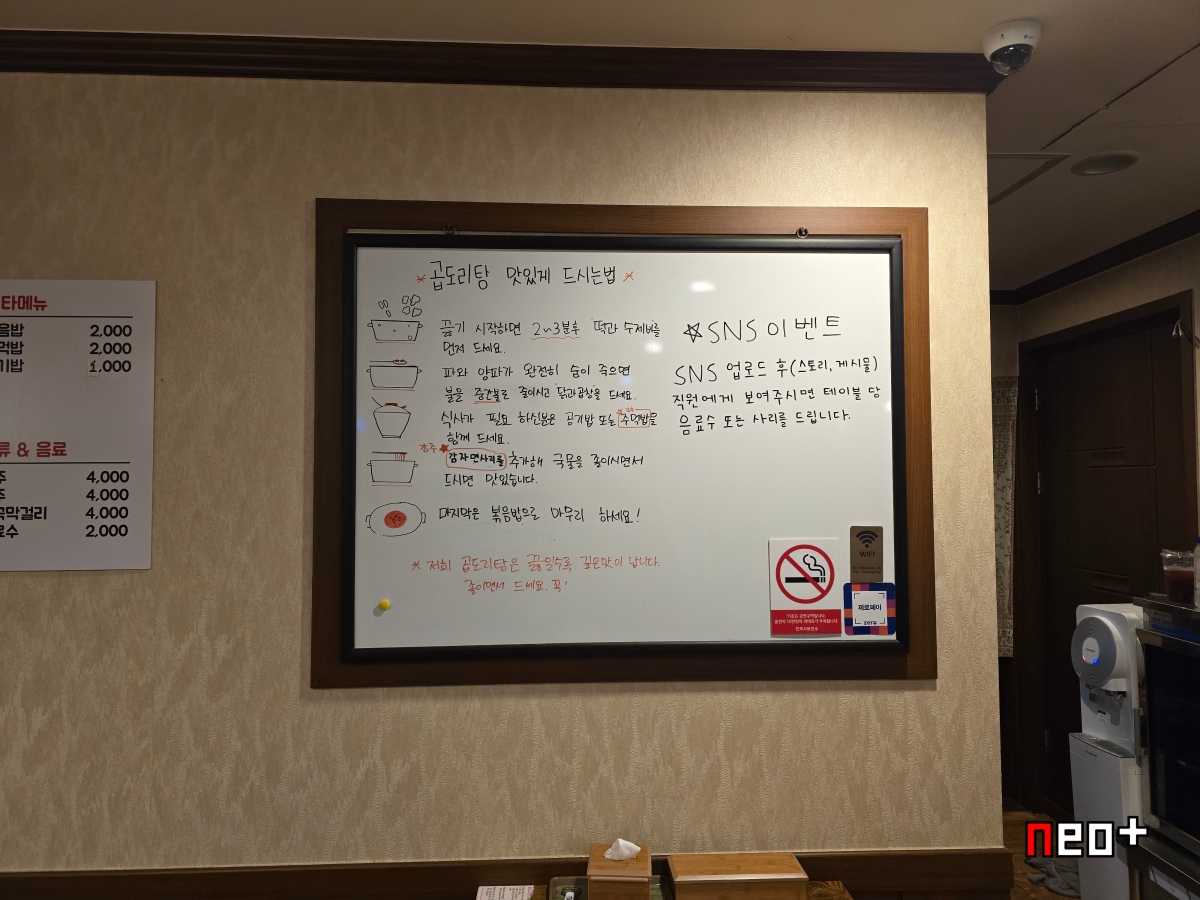 타메뉴
음밥 2,000
먹밥 2,000
기밥 1,000
류 & 음료
주 4,000
주 4,000
국막걸리 4,000
료수 2,000
*곱도리탕 맛있게 드시는법*
끓기 시작하면 2~3분후 떡과 수제비를
먼저 드세요.
파와 양파가 완전히 숨이 죽으면
불을 중간불로 줄이시고 닭과곱창을 드세요.
식사가 필요 하신분은 공기밥 또는 주먹밥을
함께 드세요.
강추★
감자면사리를 추가해 국물을 졸이시면서
드시면 맛있습니다.
마지막은 볶음밥으로 마무리 하세요!
* 저희 곱도리탕은 끓일수록 깊은맛이 납니다.
졸이면서 드세요. 꼭!
☆SNS 이벤트
SNS 업로드 후(스토리, 게시물)
직원에게 보여주시면 테이블 당
음료수 또는 사리를 드립니다.
WIFI
제로페이
zero
neo+